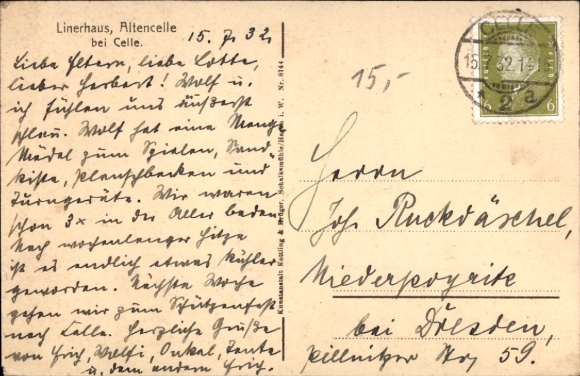 Linerhaus, Altencelle
bei Celle.
15. 7. 32.
Liebe Eltern, liebe Lotte,
lieber Herbert! Wolf u.
ich fühlen uns äußerst
schlau. Wolf hat eine Menge
Mädel zum Spielen, Sand-
kiste, Planschbecken und
Turngeräte. Wir waren
schon 3x in der Aller baden.
Nach wochenlanger Hitze
ist es endlich etwas kühler
geworden. Nächste Woche
gehen wir zum Schützenfest
nach Celle. Herzliche Grüße
von Erich, Wolfi, Onkel, Tante
u. dem andern Erich.
Kunstanstalt Schalksmühle i. W. Nr. 8144
15,-
CELLE
15.7.32.14
* 2 a
6 6
Herrn
Joh. Ruckdäschel,
Niederpoyritz
bei Dresden,
Pillnitzer Str. 59.